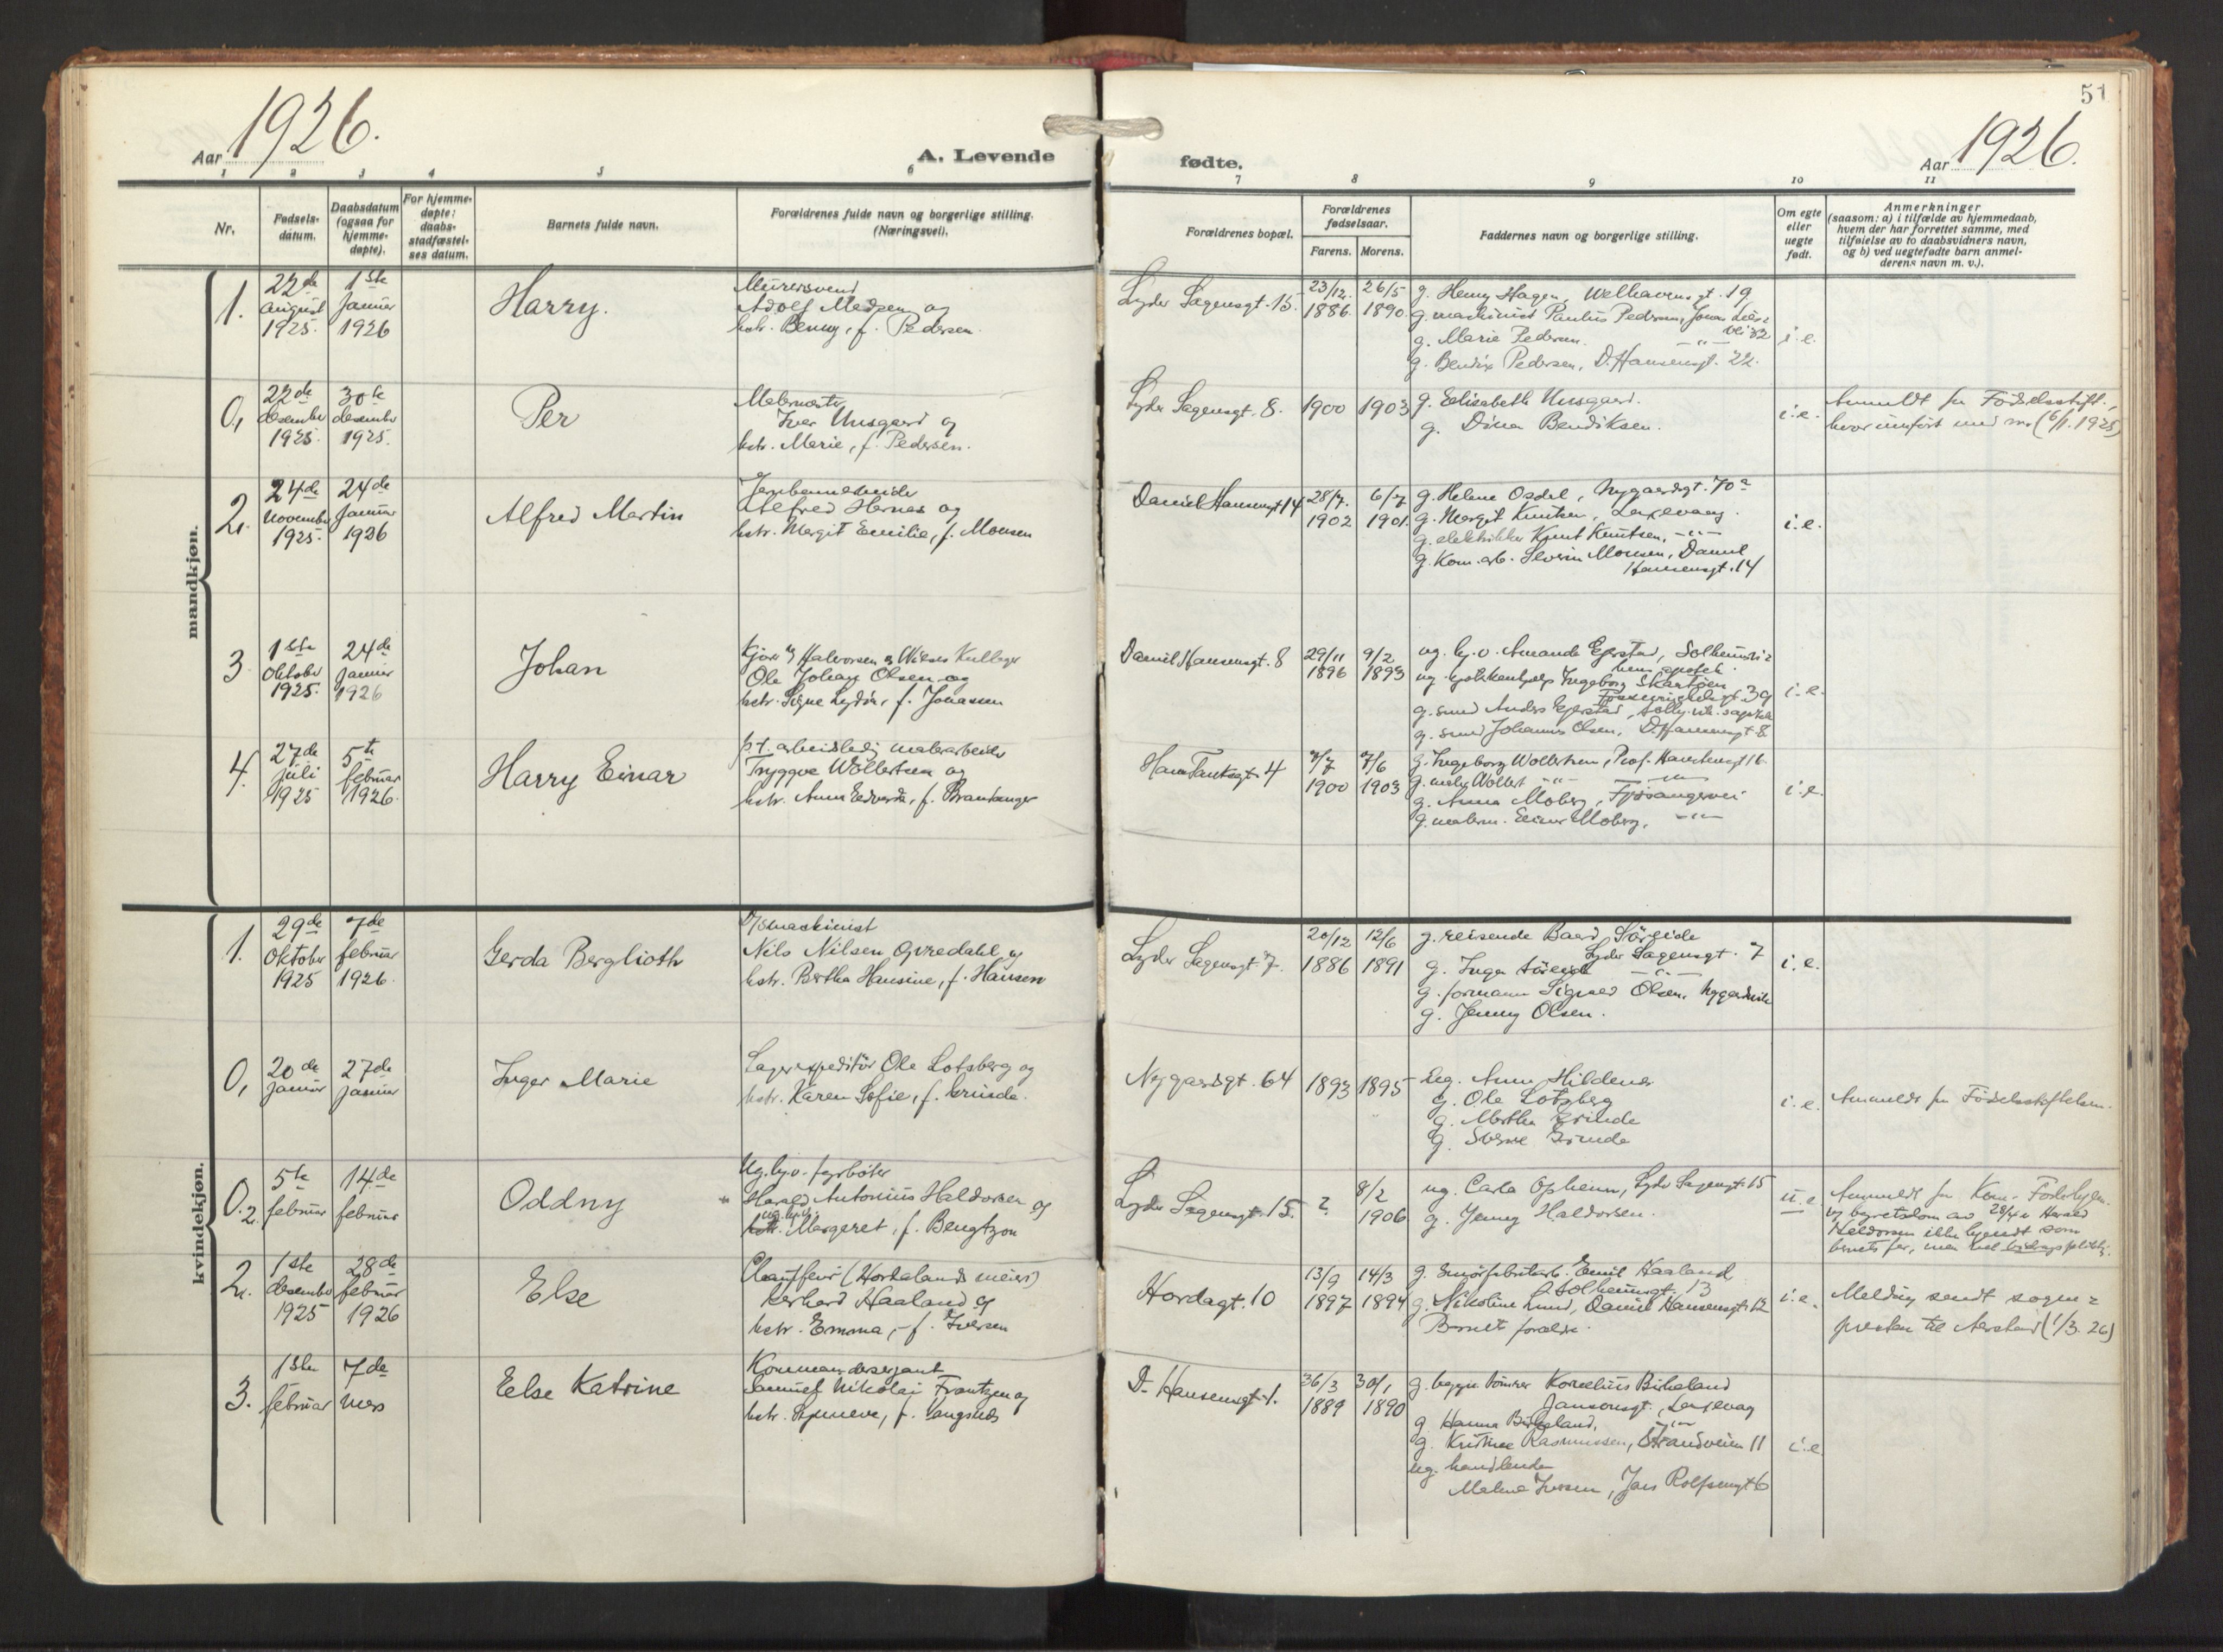 51
Aar 1926.
A. Levende
fødte.
Aar 1926.
1 2 3 4 5 6
7 8 9 10 11
Nr.
Fødsels-
datum.
Daabsdatum
(ogsaa for
hjemme-
døpte).
For hjemme-
døpte:
daabs-
stadfæstel-
ses datum.
Barnets fulde navn.
Forældrenes fulde navn og borgerlige stilling.
(Næringsvei).
Forældrenes bopæl.
Forældrenes
fødselsaar.
Farens. Morens.
Faddernes navn og borgerlige stilling.
Om egte
eller
uegte
født.
Anmerkninger
(saasom: a) i tilfælde av hjemmedaab,
hvem der har forrettet samme, med
tilføielse av to daabsvidners navn,
og b) ved uegtefødte barn anmel-
derens navn m. v.).
mandkjøn.
1.
22de
august
1925.
1ste
januar
1926
Harry.
Murersvend
Adolf Madsen og
hstr. Benny, f. Pedersen.
Lyder Sagensgt. 15.
23/12.
1886.
26/5
1890.
g. Henny Hagen, Welhavensgt. 19
g. maskinist Paulus Pedersen, Jonas Lies
vei 32
g. Marie Pedersen. -"-
g. Bendix Pedersen, D. Hansensgt. 22.
i. e.
0,
22de
desember
1925.
30te
desember
1925.
Per
Malermester
Iver Unsgaard og
hstr. Marie, f. Pedersen.
Lyder Sagensgt. 8.
1900
1903
g. Elisabeth Unsgaard.
g. Dina Bendiksen.
i. e.
Anmeldt fra Fødselsstift.,
hvor innført med nr (6/1. 1925)
2.
24de
november
1925.
24de
januar
1926
Alfred Martin
Jernbanearbeider
Alfred Hernes og
hstr. Margit Emilie, f. Monsen
Daniel Hansensgt 14
28/7.
1902
6/7
1901.
g. Helene Opdal, Nygaardsgt. 70a
g. Margit Knutsen, Laxevaag.
g. elektriker Knut Knutsen, -"-
g. Kom. arb. Severin Monsen, Daniel
Hansensgt. 14
i. e.
3.
1ste
oktober
1925.
24de
januar
1926
Johan
Ole Johan Olsen og
hstr. Signe Lydia, f. Johansen
Daniel Hansensgt. 8
29/11
1896
9/2
1893
ug. hj. v. Amanda Egerstad,
ug. kjøkkenhjelp Ingeborg
g. smed Anders Egerstad,
g. smed Johannes Olsen, D. Hansensgt 8
i. e.
4.
27de
juli
1925
5te
februar
1926.
Harry Einar
p.t. arbeidsledig malerarbeider
Tryggve Wollertsen og
hstr. Anna Edvarda, f. Brantanger
Hans Tanksgt. 4
7/7
1900
7/6
1903
g. Ingeborg Wollertsen, Prof. Hansteensgt 16
g. maler Wollert -"- -"-
g. Anna Moberg, Fjøsangervei
g. malerm. Einar Moberg, -"-
i. e.
kvindekjøn.
1.
29de
oktober
1925
7de
februar
1926.
Gerda Berglioth
D/S maskinist
Nils Nilsen Qvredahl og
hstr. Bertha Hansine, f. Hansen
Lyder Sagensgt. 7.
20/12
1886
12/6
1891
g. reisende Baard Søreide
Lyder Sagensgt. 7
g. Inga Søreide -"-
g. formann Sigvald Olsen,
g. Jenny Olsen.
i. e.
0,
20de
januar
27de
januar
Inger Marie
Lagerexpeditør Ole Lotsberg og
hstr. Karen Sofie, f. Grinde.
Nygaardsgt. 64
1893
1895
Ug. Anna Hildener
g. Ole Lotsberg
g. Martha Grinde
g. Sverre Grinde
i. e.
Anmeldt fra Fødselsstiftelsen.
0.2.
5te
februar
14de
februar
Oddny
Ug. hj. v. fyrbøter
Harald Antonius Haldorsen og
ug. hj. v.
hstr. Margaret, f. Bengtzon
Lyder Sagensgt. 15.
?
8/2
1906
ug. Carla Opheim, Lyder Sagensgt. 15
g. Jenny Haldorsen.
u. e.
Anmeldt fra Kom. Fødehjem.
Ved byretsdom av 28/4 er Harald
Haldorsen ikke kjendt som
barnets far, men bidragspliktig.
2.
1ste
desember
1925
28de
februar
1926
Else
Chauffeur (Hordalands meieri)
Gerhard Haaland og
hstr. Emma, f. Iversen
Hordagt. 10
13/9
1897
14/3
1894
g. smørfabrikarb. Emil Haaland
Solheimsgt. 13
g. Nikoline Lund, Daniel Hansensgt. 12
Barnets forældre.
i. e.
Melding sendt sogne-
presten til Aarstad (1/3. 26)
3.
1ste
februar
7de
mars
Else Katrine
Kommandersergant
Samuel Nikolai Frantzen og
hstr. Synneve, f. Langsæd
D. Hansensgt. 1.
36/3
1889
30/1
1890
g. bygn. tømrer Kornelius Birkeland
Jansonsgt., Laxevaag
g. Hanna Birkeland, -"-
g. Kristine Rasmussen, Strandveien 11
ug. handlende
Malene Iversen, Jars Rolfsensgt 6
i. e.